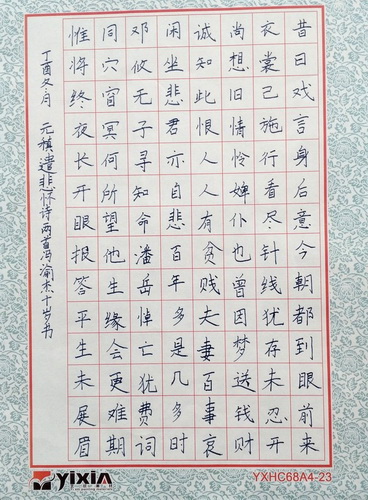 昔日戏言身后意今朝都到眼前来
衣裳己施行看尽针线犹存未忍开
尚想旧情怜婢仆也曾因梦送钱财
诚知此恨人人有贫贱夫妻百事哀
闲坐悲君亦自悲百年多是几多时
邓攸无子寻知命潘岳悼亡犹费词
同穴窅冥何所望他生缘会更难期
惟将终夜长开眼报答平生未展眉
丁酉冬月 元稹遣悲怀诗两首冯渝杰十岁书
YIXIN
YXHC68A4-23